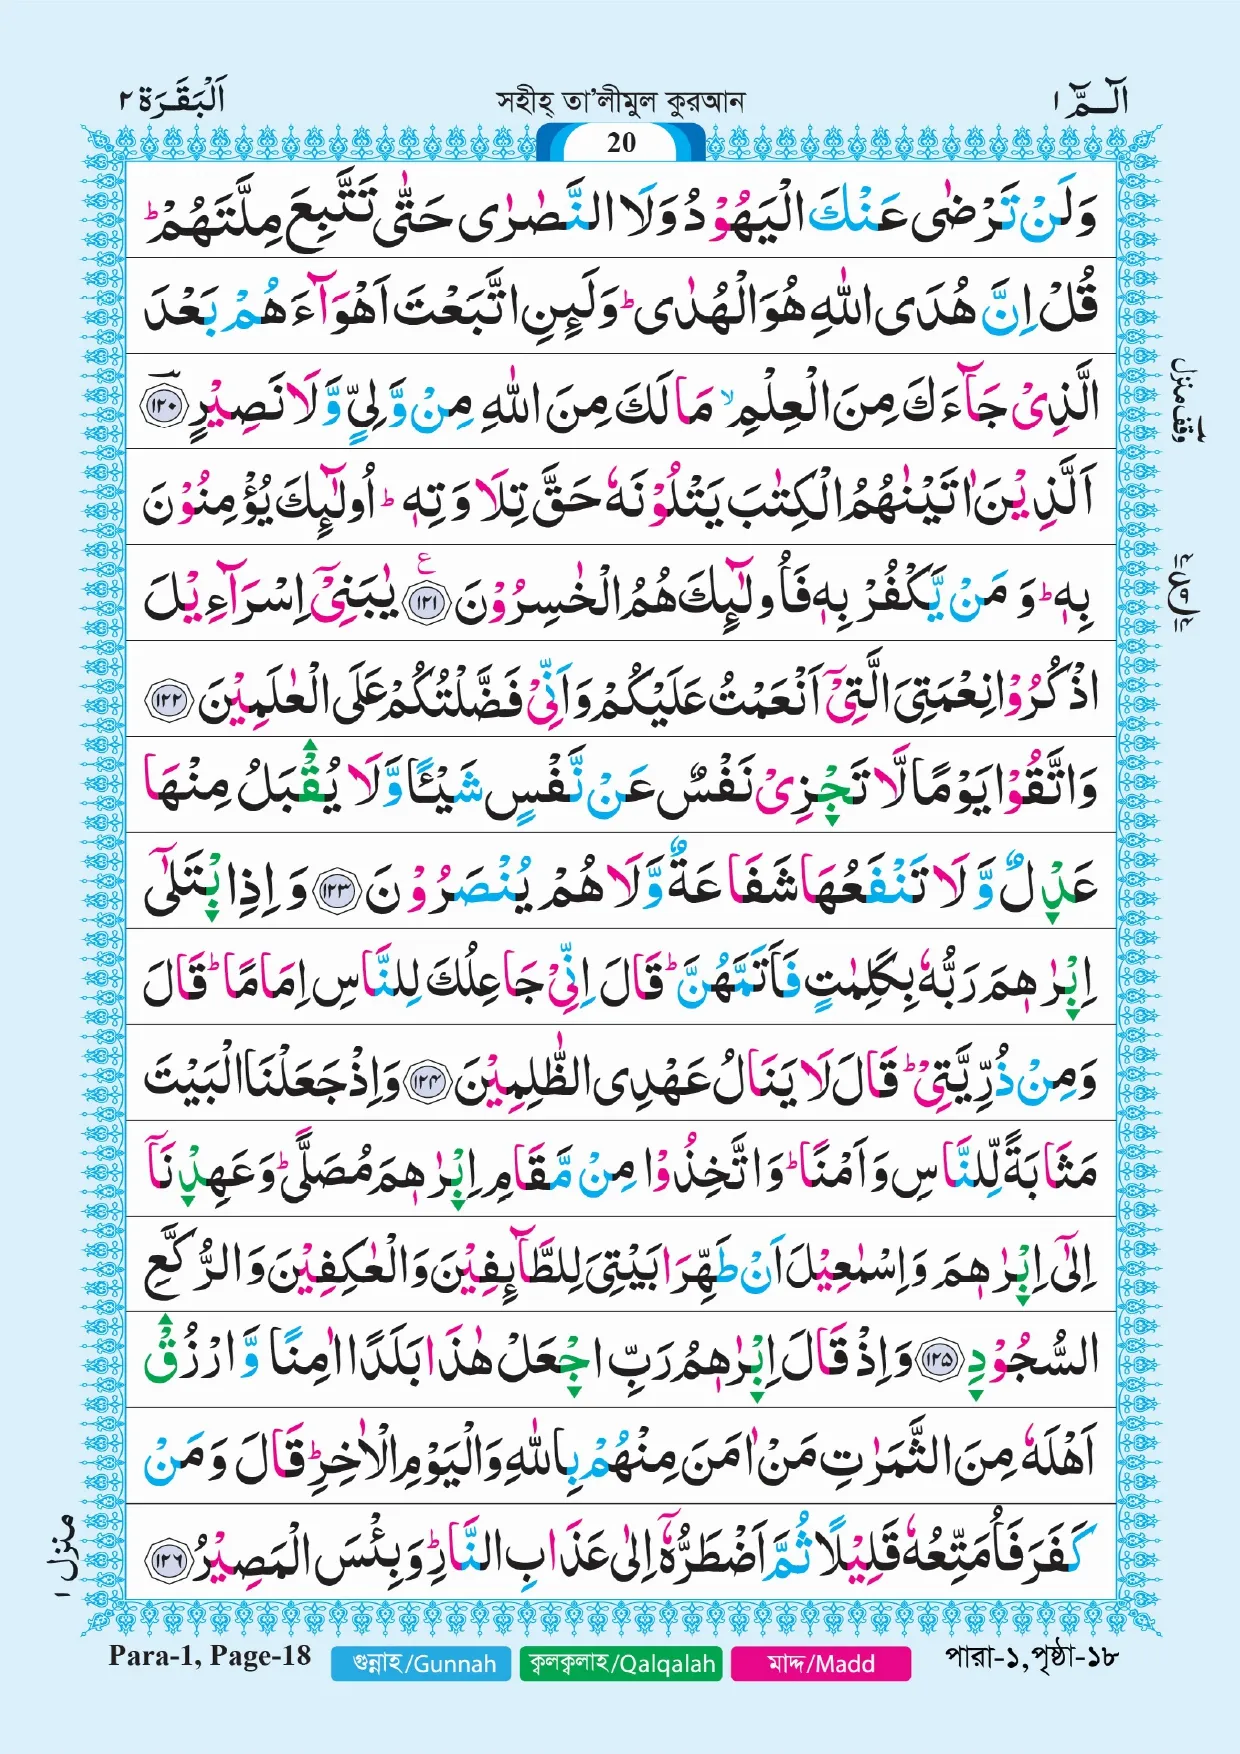 اَلْبَقَرَة ٢
সহীহ্ তা’লীমুল কুরআন
الٓـمّٓ ١
20
وَلَنْ تَرْضٰى عَنْكَ الْيَهُوْدُ وَلَا النَّصٰرٰى حَتّٰى تَتَّبِعَ مِلَّتَهُمْ ؕ
قُلْ اِنَّ هُدَى اللّٰهِ هُوَ الْهُدٰى ؕ وَلَىِٕنِ اتَّبَعْتَ اَهْوَآءَهُمْ بَعْدَ
الَّذِىْ جَآءَكَ مِنَ الْعِلْمِ ۙ مَا لَكَ مِنَ اللّٰهِ مِنْ وَّلِىٍّ وَّلَا نَصِيْرٍ ﴿١٢٠﴾
وقف منزل
اَلَّذِيْنَ اٰتَيْنٰهُمُ الْكِتٰبَ يَتْلُوْنَهٗ حَقَّ تِلَا وَتِهٖ ؕ اُولٰٓىِٕكَ يُؤْمِنُوْنَ
بِهٖ ؕ وَمَنْ يَّكْفُرْ بِهٖ فَاُولٰٓىِٕكَ هُمُ الْخٰسِرُوْنَ ﴿١٢١﴾ ع يٰبَنِىْٓ اِسْرَآءِيْلَ
اذْكُرُوْا نِعْمَتِىَ الَّتِىْٓ اَنْعَمْتُ عَلَيْكُمْ وَاَنِّىْ فَضَّلْتُكُمْ عَلَى الْعٰلَمِيْنَ ﴿١٢٢﴾
وَاتَّقُوْا يَوْمًا لَّا تَجْزِىْ نَفْسٌ عَنْ نَّفْسٍ شَيْـًٔا وَّلَا يُقْبَلُ مِنْهَا
عَدْلٌ وَّلَا تَنْفَعُهَا شَفَاعَةٌ وَّلَا هُمْ يُنْصَرُوْنَ ﴿١٢٣﴾ وَاِذِ ابْتَلٰٓى
اِبْرٰهٖمَ رَبُّهٗ بِكَلِمٰتٍ فَاَتَمَّهُنَّ ؕ قَالَ اِنِّىْ جَاعِلُكَ لِلنَّاسِ اِمَامًا ؕ قَالَ
وَمِنْ ذُرِّيَّتِىْ ؕ قَالَ لَا يَنَالُ عَهْدِى الظّٰلِمِيْنَ ﴿١٢٤﴾ وَاِذْ جَعَلْنَا الْبَيْتَ
مَثَابَةً لِّلنَّاسِ وَاَمْنًا ؕ وَاتَّخِذُوْا مِنْ مَّقَامِ اِبْرٰهٖمَ مُصَلًّى ؕ وَعَهِدْنَآ
اِلٰٓى اِبْرٰهٖمَ وَاِسْمٰعِيْلَ اَنْ طَهِّرَا بَيْتِىَ لِلطَّآىِٕفِيْنَ وَالْعٰكِفِيْنَ وَالرُّكَّعِ
السُّجُوْدِ ﴿١٢٥﴾ وَاِذْ قَالَ اِبْرٰهٖمُ رَبِّ اجْعَلْ هٰذَا بَلَدًا اٰمِنًا وَّارْزُقْ
اَهْلَهٗ مِنَ الثَّمَرٰتِ مَنْ اٰمَنَ مِنْهُمْ بِاللّٰهِ وَالْيَوْمِ الْاٰخِرِ ؕ قَالَ وَمَنْ
كَفَرَ فَاُمَتِّعُهٗ قَلِيْلًا ثُمَّ اَضْطَرُّهٗٓ اِلٰى عَذَابِ النَّارِ ؕ وَبِئْسَ الْمَصِيْرُ ﴿١٢٦﴾
منزل ١
Para-1, Page-18
গুন্নাহ/Gunnah
ক্বলক্বলাহ/Qalqalah
মাদ্দ/Madd
পারা-১,পৃষ্ঠা-১৮